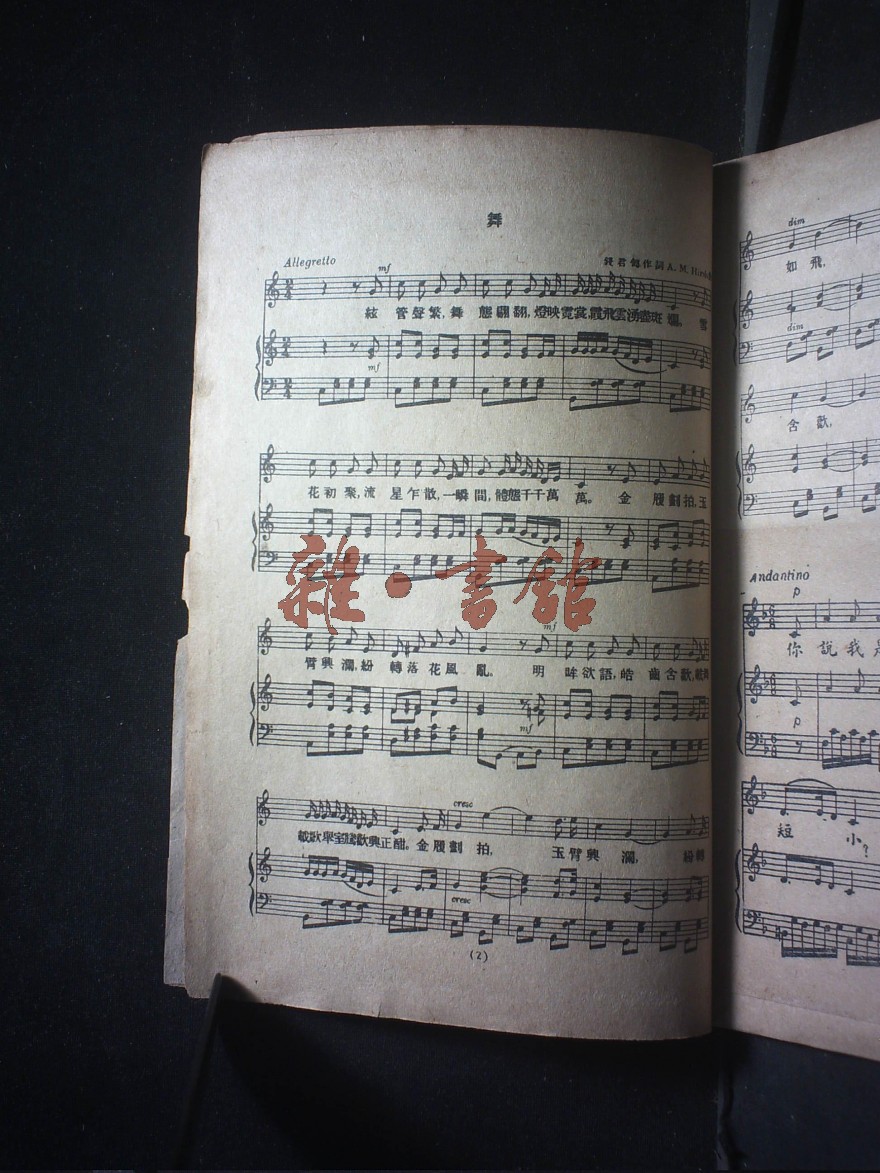 舞
Allegretto
mf
君 作 詞 A. M.
絃 管 聲 繁, 舞 態 翩 翻, 燈 映 霓 裳, 霞 飛 雲 湧 盡 斑 斕。 雪
mf
花 初 聚, 流 星 乍 散, 一 瞬 間, 體 態 千 千 萬 萬。 金 履 劃 拍, 玉
雜·書館
mf
臂 興 瀾, 紛 轉 落 花 風 亂。 明 眸 欲 語, 皓 齒 含 歡,
mf
歌 歡 興 正 酣。 金 履 劃 拍, 玉 臂 興 瀾, 紛 轉
cresc
cresc
(2)
dim
如 飛,
dim
含 歡,
Andantino
p
你 說 我 是
p
短 小?